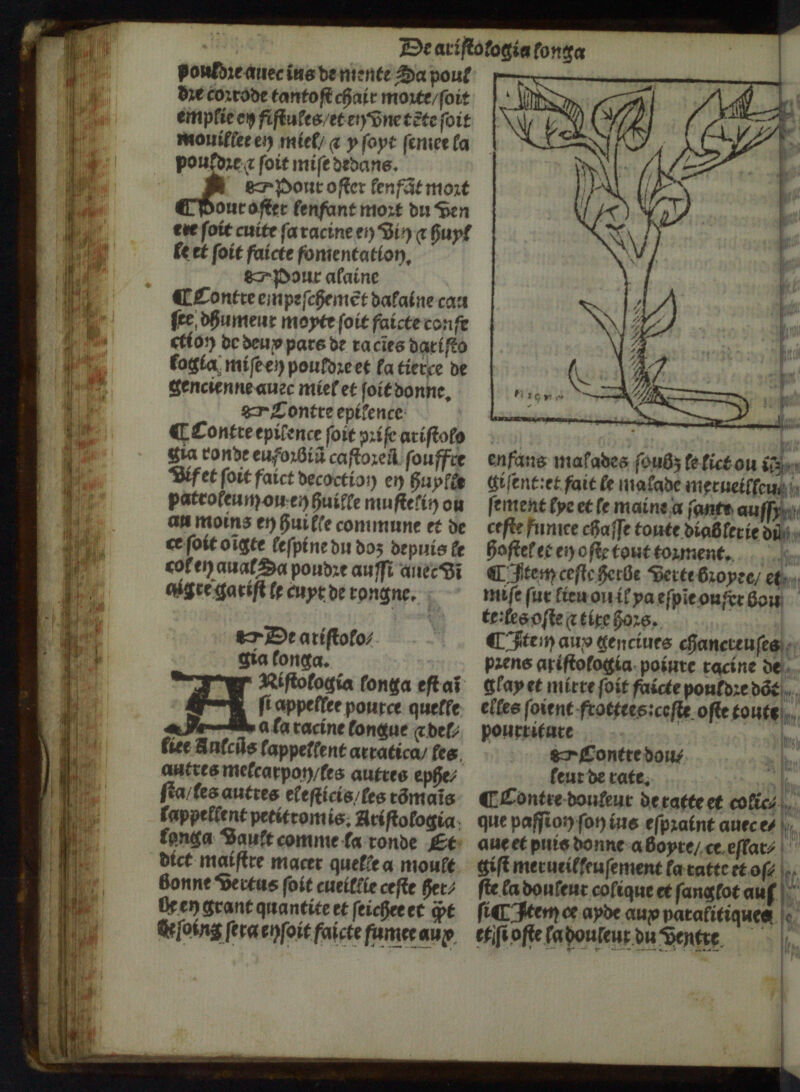 De aristologia longa
pouldre auec ius de mente Sa poul
dre corrode tantost chair morte/soit
emplie en fistules/et en vne tête soit
mouillee en miel/ & y soyt semee la
pouldre & soit mise dedans.
Pour oster lenfāt mort
¶Pour oster lenfant mort du ven
tre soit cuite sa racine en vin & huyl
le et soit faicte fomentation.
Pour alaine
¶Contre empeschemēt dalaine cau
see dhumeur moyte soit faicte confe
ction de deux pars de racies daristo
logia, mise en pouldre et la tierce de
gencienne auec miel et soit donne.
Contre epilence
¶Contre epilence soit prise aristolo
gia ronde euforbiū castoreū souffre
vif et soit faict decoction en huylle
patroleum ou en huille mustelin ou
au moins en huille commune et de
ce soit oīgte lespine du dos depuis le
col en aual Sa poudre aussi auec vi
aigre garist le cuyr de rongne.
De aristolo/
gia longa.
ARistologia longa est aī
si appellee pource quelle
a la racine longue & del/
liee Aulcūs lappellent arratica/ les
autres melcarpon/les autres ephe/
sta/les autres elesticis/les rōmaīs
lappellent petitromis. Aristologia
longa vault comme la ronde Et
dict maistre macer quelle a moult
bonne vertus soit cueillie ceste her/
be en grant quantite et seichee et qt
besoing sera en soit faicte fumee aux
enfans malades soubz le lict ou ilz
gisent:et fait le malade merueilleu
sement lye et le maine a sante aussy
ceste fumee chasse toute diablerie dū
hostel et en oste tout torment.
¶Item ceste herbe verte broyee/ et
mise sur lieu ou il y a espie ou fer bou
te:les oste & tire hors.
¶Item aux genciues chancreuses
prens aristologia poiure racine de
glay et mirre soit faicte pouldre dōt
elles soient frottees:ceste oste toute
pourriture
Contre dou/
leur de rate.
¶Contre douleur de ratte et colic/
que passion son ius espraint auec e/
aue et puis donne a boyre/ ce essar/
gist merueilleusement la ratte et os/
ste la douleur colique et sanglot aus
si ¶Item ce ayde aux paralitiques
et si oste la douleur du ventre